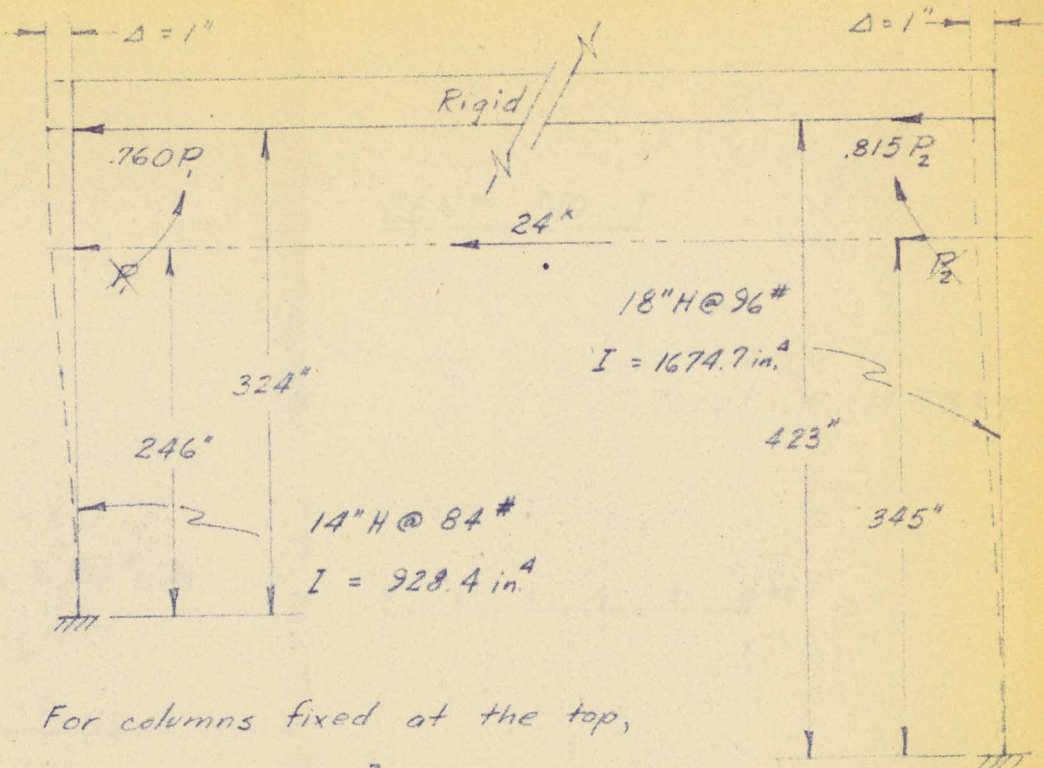 Δ = 1"
Δ = 1"
Rigid
.760P₁
.815P₂
24ᴷ
P₁
P₂
18"H@96#
I = 1674.7 in.⁴
324"
246"
423"
345"
14"H@84#
I = 928.4 in.⁴
For columns fixed at the top,